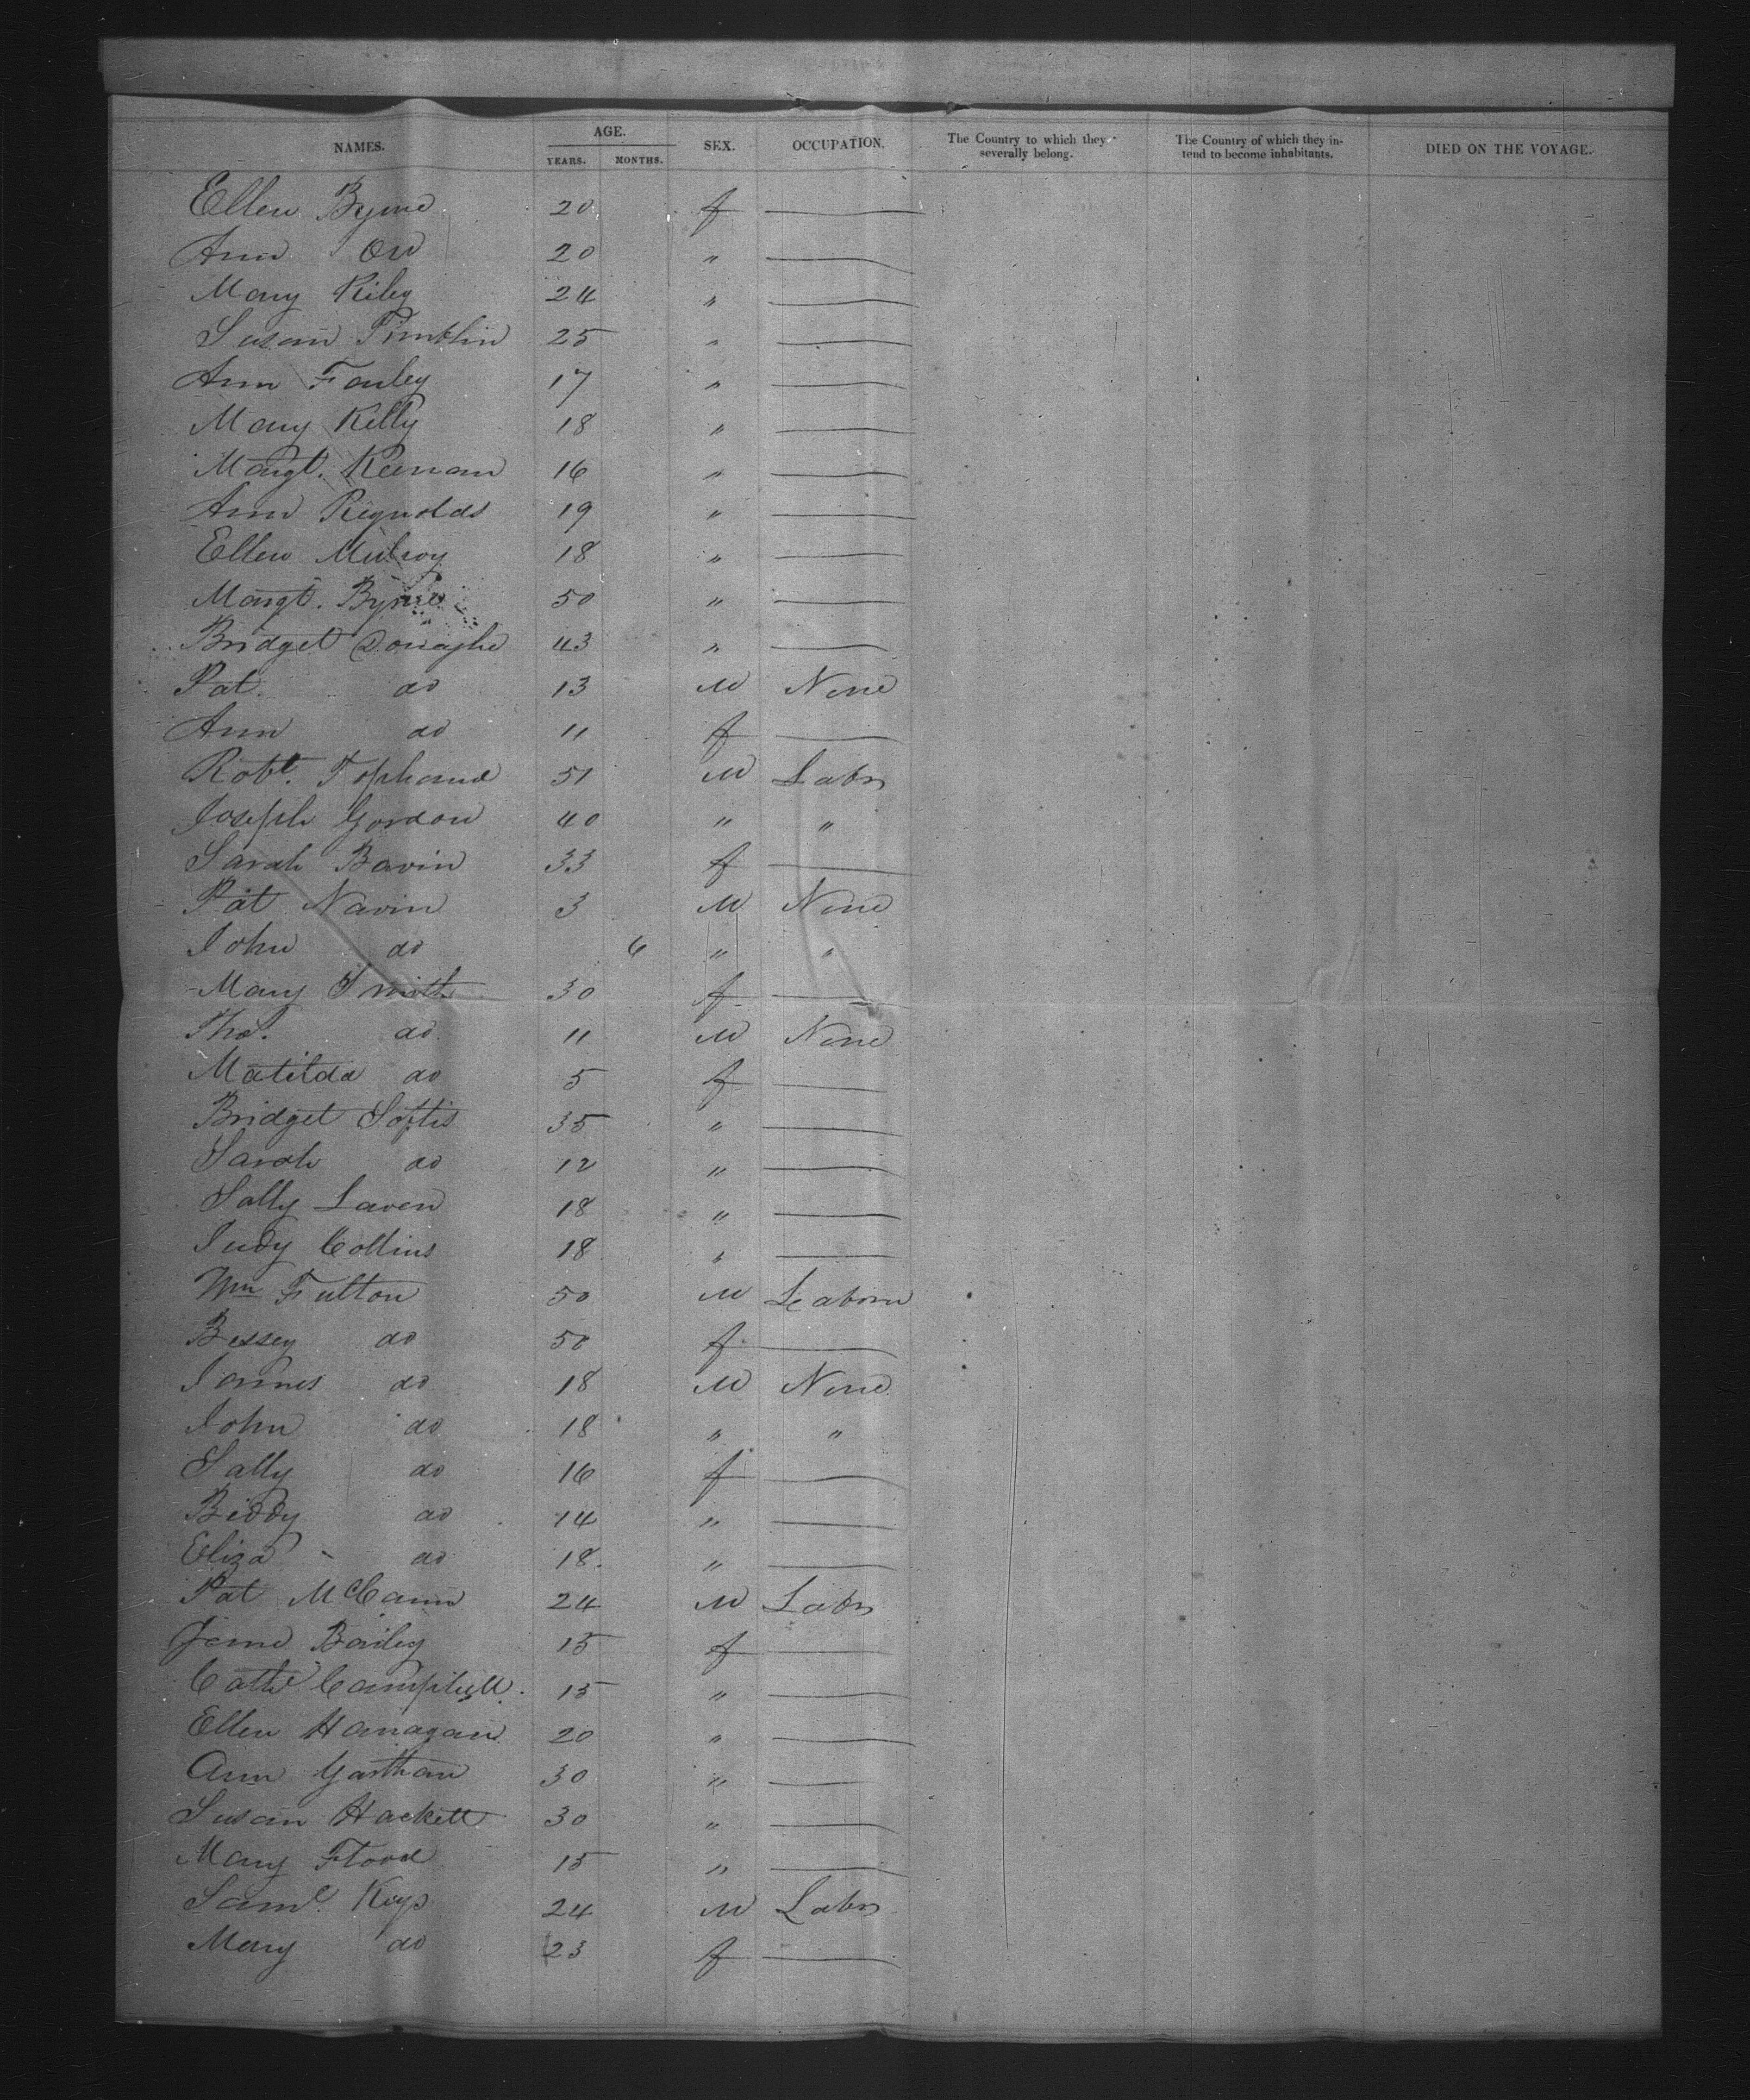 NAMES. AGE. SEX. OCCUPATION. The Country to which they severally belong. The Country of which they intend to become inhabitants. DIED ON THE VOYAGE.
YEARS. MONTHS.
Ellen Byrne 20 f —
Ann Orr 20 " —
Mary Riley 24 " —
Susan 25 " —
Ann Fanley 17 " —
Mary Kelly 18 " —
Margt. Keenan 16 " —
Ann Reynolds 19 " —
Ellen Mulroy 18 " —
Margt. Byrne 50 " —
Bridget Donaghe 43 " —
Pat. do 13 M None
Ann do 11 f —
Robt. Tophand 51 M Labr
Joseph Gordon 40 " "
Sarah Bavin 33 f —
Pat Navin 3 M None
John do 6 " "
Mary Smith 30 f —
Thos. do 11 M None
Matilda do 5 f —
Bridget Softis 35 " —
Sarah do 12 " —
Sally Laven 18 " —
Judy Collins 18 " —
Wm Fulton 50 M Labour
Bessey do 50 f —
James do 18 M None
John do 18 " "
Sally do 16 f —
Biddy do 14 " —
Eliza do 18. " —
Pat McCann 24 M Labr
Jane Bailey 15 f —
Cathe Campbell. 15 " —
Ellen Hanagan 20 " —
Ann 30 " —
Susan Hackett 30 " —
Mary Flood 15 " —
Saml. Keys 24 M Labr
Mary do 23 f —